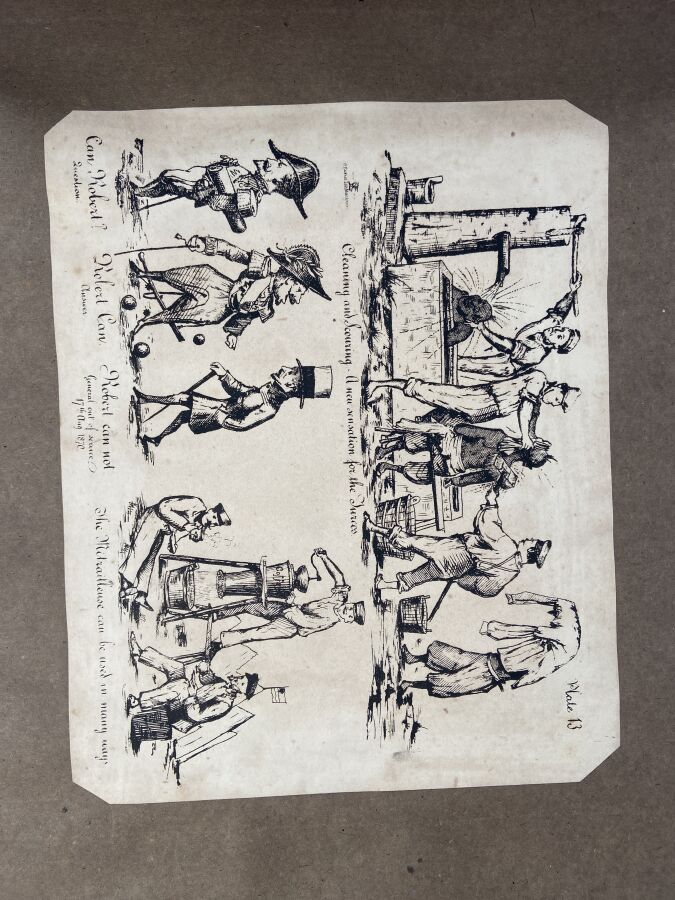 Plate 13
Cleaning and Scouring. A new sensation for the Turcos
Can Robert?
Question.
Robert Can.
Answer
Robert can not
General out of service
17th Aug 1870
The Mitrailleuse can be used in many ways